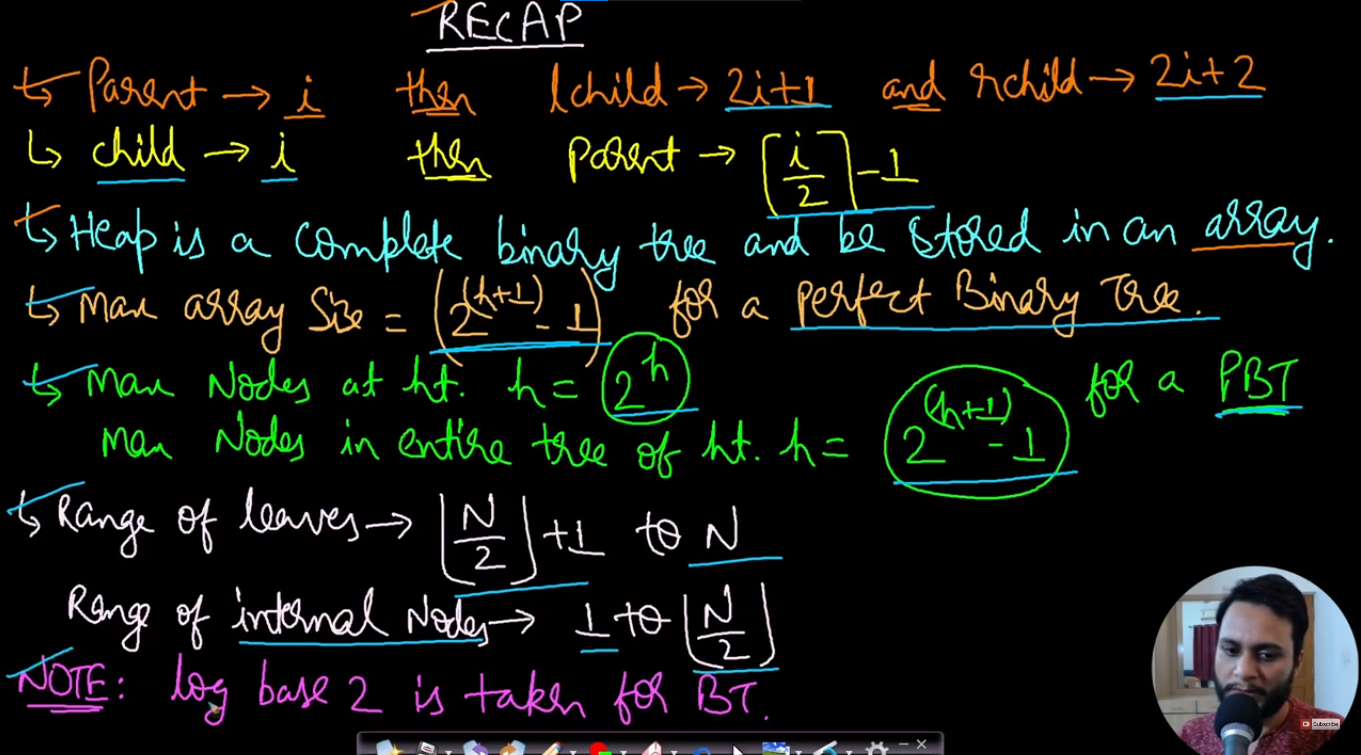 RECAP
Parent → i then lchild → 2i+1 and rchild → 2i+2
child → i then parent → ⌈i/2⌉ - 1
Heap is a complete binary tree and be stored in an array.
Max array size = (2^(h+1) - 1) for a perfect Binary Tree.
Max Nodes at ht. h = 2^h
Max Nodes in entire tree of ht. h = 2^(h+1) - 1 for a PBT
Range of leaves → ⌊N/2⌋ + 1 to N
Range of internal Nodes → 1 to ⌊N/2⌋
NOTE: log base 2 is taken for BT.
Subscribe